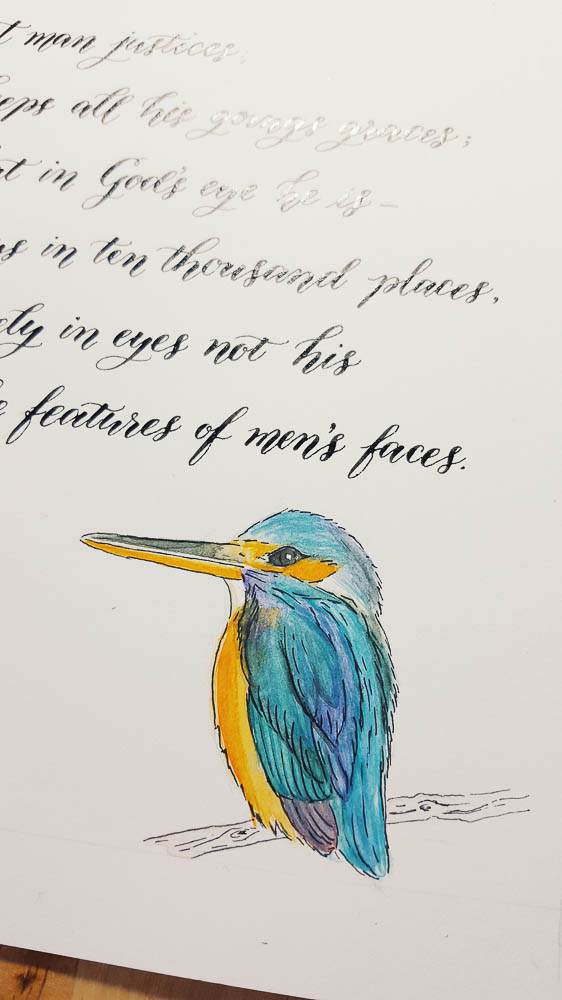 t man justices;
eeps all his goings graces;
at in God's eye he is—
ys in ten thousand places,
ely in eyes not his
e features of men's faces.